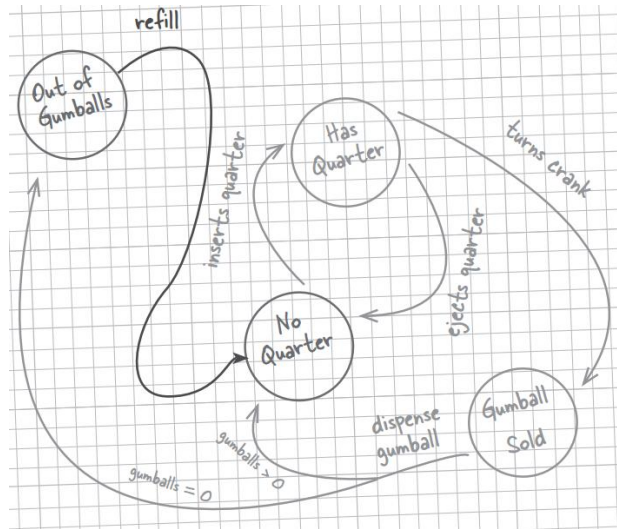 refill
Out of
Gumballs
Has
Quarter
turns crank
inserts quarter
ejects quarter
No
Quarter
dispense
gumball
Gumball
Sold
gumballs > 0
gumballs = 0